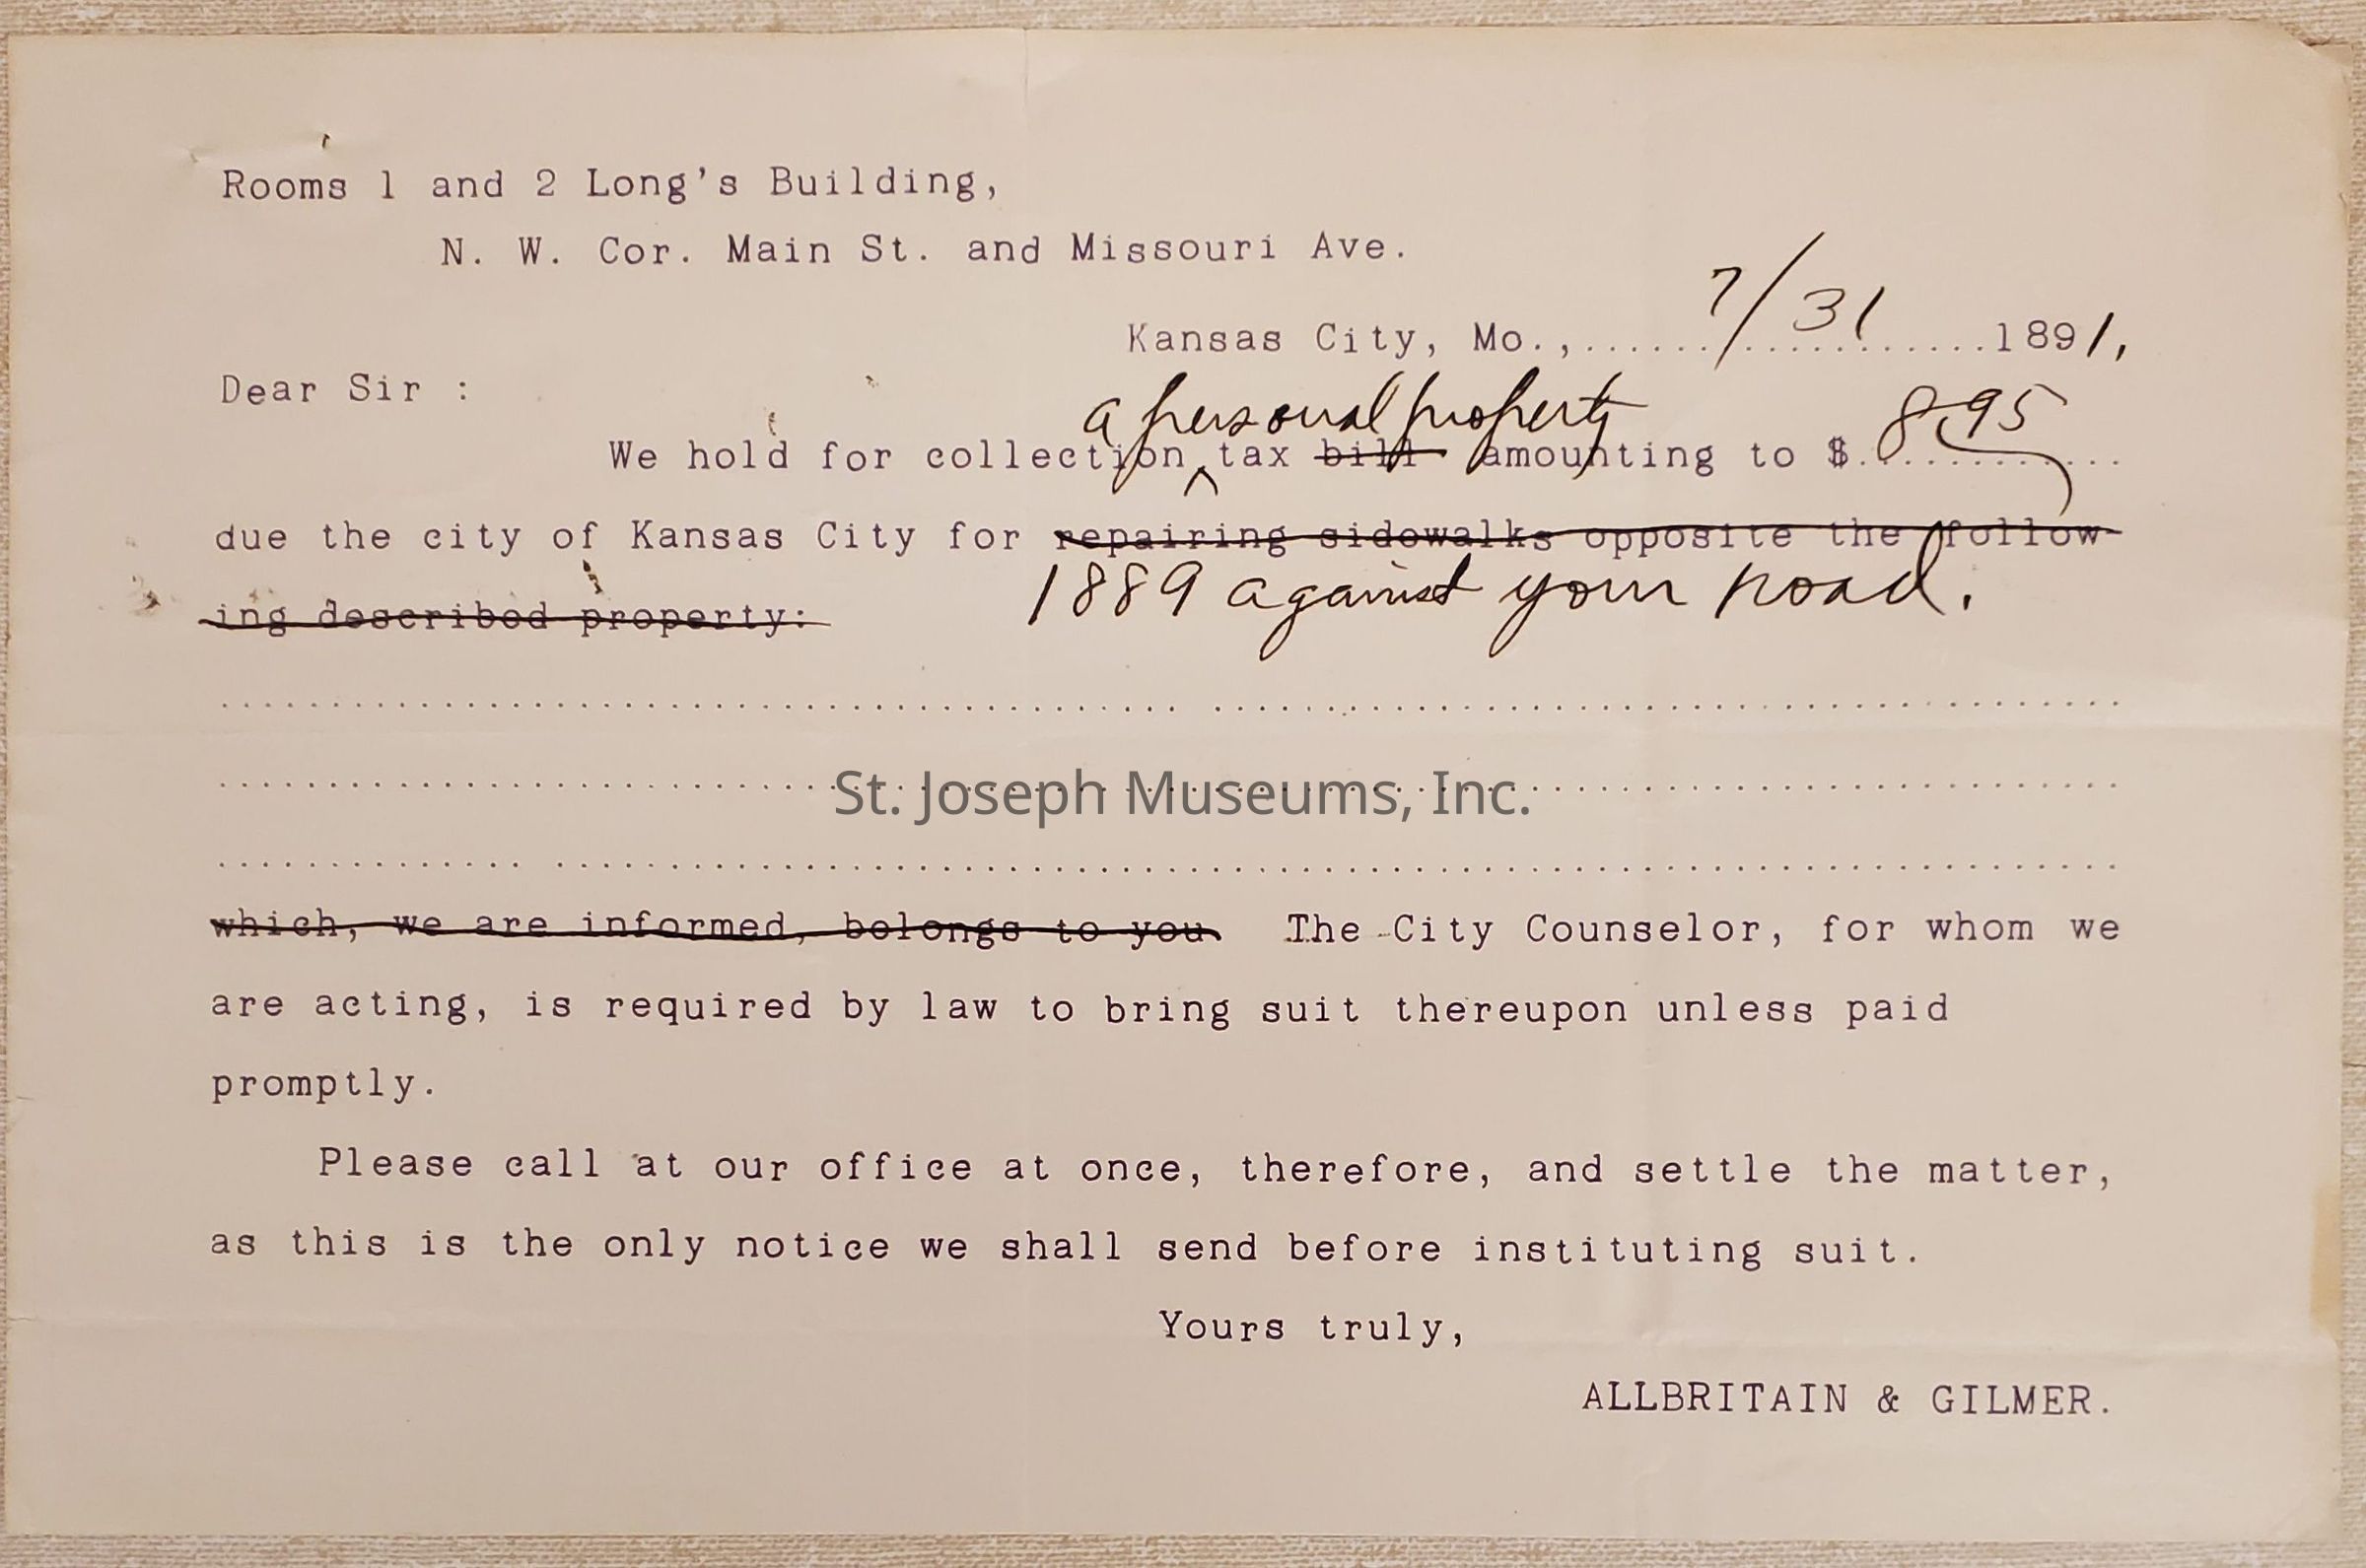 Rooms 1 and 2 Long's Building,
N. W. Cor. Main St. and Missouri Ave.
Kansas City, Mo.,......7/31......1891,
Dear Sir :
a personal property
We hold for collection ‸ tax bill amounting to $.8 95
due the city of Kansas City for repairing sidewalks opposite the follow-
ing described property: 1889 against your road.
St. Joseph Museums, Inc.
which, we are informed, belongs to you. The City Counselor, for whom we
are acting, is required by law to bring suit thereupon unless paid
promptly.
Please call at our office at once, therefore, and settle the matter,
as this is the only notice we shall send before instituting suit.
Yours truly,
ALLBRITAIN & GILMER.